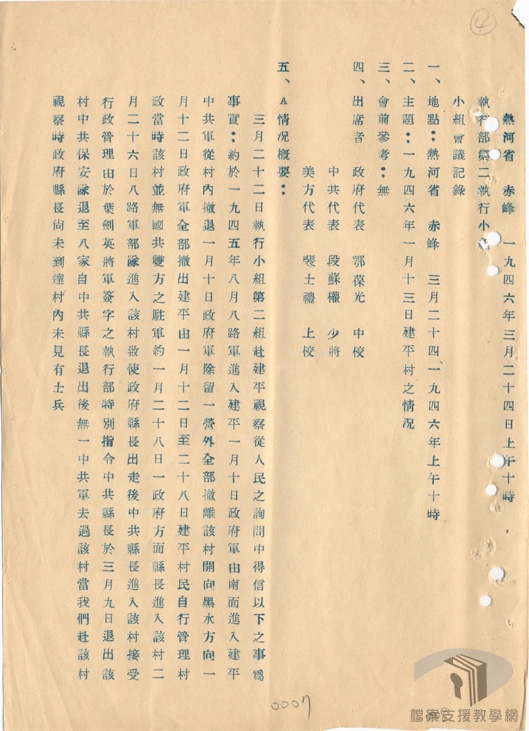 ④
熱河省　赤峰　一九四六年三月二十四日上午十時
執行部第二執行小組
小組會議記錄
一、地點：熱河省　赤峰　三月二十四、一九四六年上午十時
二、主題：一九四六年一月十三日建平村之情況
三、會前參考：無
四、出席者　政府代表　鄂葆光　中校
中共代表　段蘇權　少將
美方代表　裴士禮　上校
五、A情況概要：
三月二十二日執行小組第二組赴建平視察從人民之詢問中得信以下之事爲
事實：約於一九四五年八月八路軍進入建平一月十日政府軍由南面進入建平
中共軍從村內撤退一月十日政府軍除留一營外全部撤離該村開向黑水方向一
月十二日政府軍全部撤出建平由一月十二日至二十八日建平村民自行管理村
政當時該村並無國共雙方之駐軍約一月二十八日一政府方面縣長進入該村二
月二十六日八路軍部隊進入該村致使政府縣長出走後中共縣長進入該村接受
行政管理由於葉劍英將軍簽字之執行部特別指令中共縣長於三月九日退出該
村中共保安隊退至八家自中共縣長退出後無一中共軍去過該村當我們赴該村
視察時政府縣長尚未到達村內未見有士兵
0007
檔案支援教學網